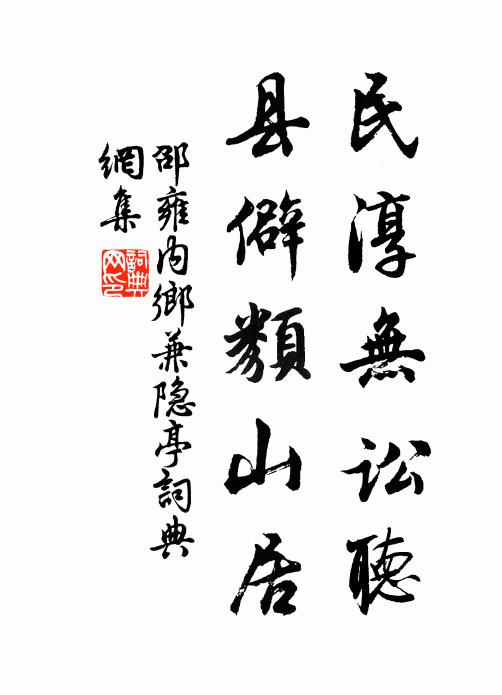 民淳無訟聽
县僻類山居
邵雍內鄉兼隐亭詞典
網集
詞典
网印